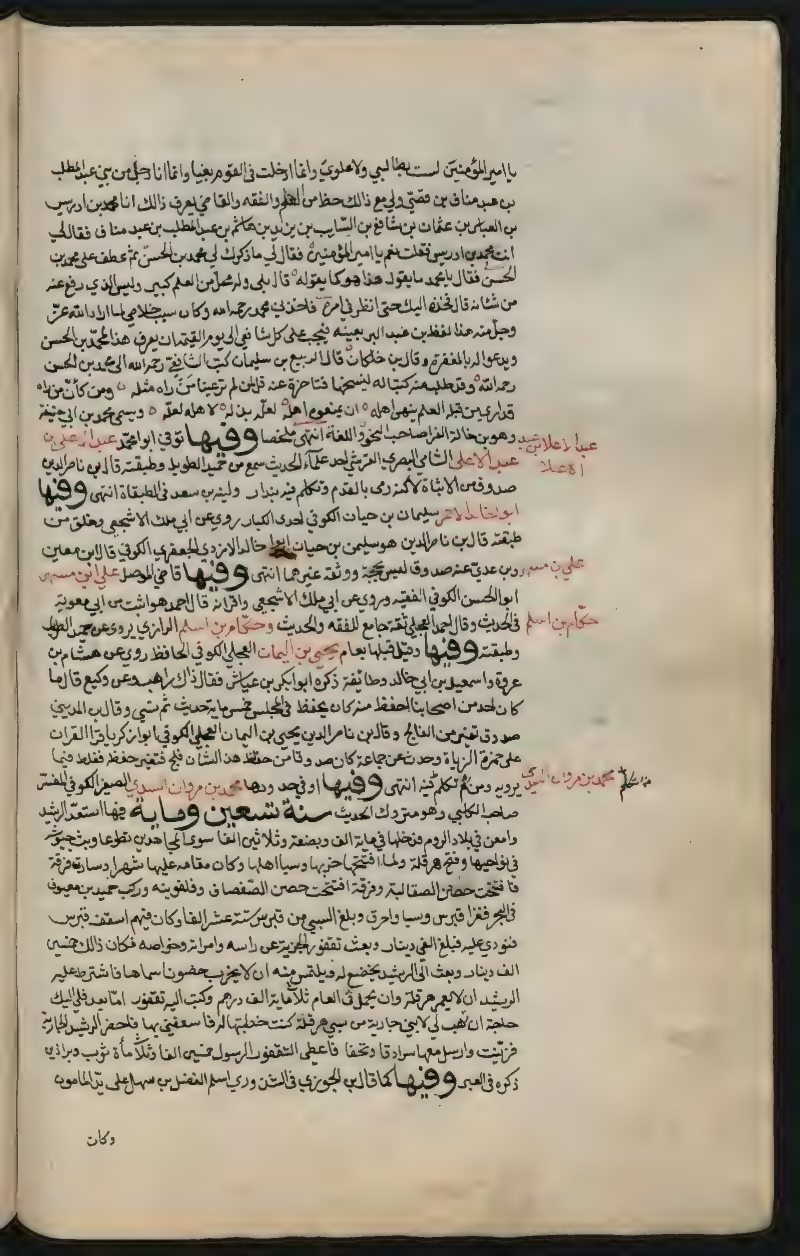 يا امير المؤمنين لست بطالبي ولا علوي وانما ادخلت في القوم بغيا وانما انا رجل من بني عبد المطلب
بن عبد مناف بن قصي ولي مع ذالك حظ من العلم والفقه والقاضي يعرف ذالك انا محمد بن ادريس
بن العباس بن عثمان بن شافع بن السايب بن يزيد بن هاشم بن عبد المطلب بن عبد مناف فقال لي
انت محمد بن ادريس فقلت نعم يا امير المؤمنين فقال لي ما ذكرك لي محمد بن الحسن ثم عطف على محمد بن
الحسن فقال يا محمد ما يقول هذا هو كما يقوله قال بلى وله محل من العلم كبير وليس الذي رفع عنه
من شانه قال فخذه اليك حتى انظر في امره فاخذني محمد رحمه الله وكان سبب خلاصي لما اراد الله عز
وجل منه هذا لفظ بن عبد البر بعينه فيجب على كل شافعي الى يوم القيمة ان يعرف هذا لمحمد بن الحسن
ويدعوا له بالمغفرة وقال بن خلكان قال الربيع بن سليمان كتب الشافعي رحمه الله الى محمد بن الحسن
رحمه الله وقد طلب منه كتبا له لينسخها فتاخرة عنه قل لمن لم ترعينا من راه مثله ومن كان من راه
قد اري من قبله العلم ينهى اهله ان يمنعوه اهله لعله يبذله لاهله لعله ويسمى محمد بن ابي حنيفة
وهو بن خالة الفرا صاحب النحو واللغة انتهى ملخصا وفيها توفي ابو محمد عبد الاعلى بن
عبد الاعلى الشامي البصري القرشي احد علماء الحديث سمع من حميد الطويل وطبقته قال بن ناصر الدين
صدوق من الاثباة لاكنه رمى بالقدم وتكلم فيه بندار ولينه بن سعد في الطبقاة انتهى وفيها
ابو خالد الاحمر سليمان بن حيان الكوفي احدى الكبار روى عن ابي ملك الاشجعي وخلق من
طبقته قال بن ناصر الدين هو سليمن بن حيان ابوا خالد الازدي الجعفري الكوفي قال بن معين
وبن عدي عنه صدوق ليس بحجة ووثقة غيرهما انتهى وفيها قاضي الموصل علي بن مسهر
ابو الحسن الكوفي الفقيه وروى عن ابي ملك الاشجعي واقرانه قال احمد هو اثبت من ابي معوية
في الحديث وقال احمد العجلي ثقة جامع للفقه والحديث وحكام بن اسلم الرازي يروى عن حميد الطويل
وطبقته وفيها وقيل قبلها بعام يحيى بن اليمان العجلي الكوفي الحافظ روى عن هشام بن
عروة واسمعيل بن ابي خالد وطائفة ذكره ابوا بكر بن عياش فقال ذاك راهب وعن وكيع قال ما
كان احد من اصحابنا احفظ منه كان يحفظ في المجلس خمس ماية حديث ثم نسي وقال بن المديني
صدوق تغير من الفالج وقال بن ناصر الدين يحيى بن اليمان العجلي الكوفي ابوا زكريا قرا القران
على حمزة الزياة وحدث عن جماعة كان صدوقا من حفاظ هذ الشان فلج فتغير حفظه فغلط فيما
يرويه ومن ثم تكلم فيه انتهى وفيها او في حدودها محمد بن مروان السدي الصغير الكوفي المفسر
صاحب الكلبي وهو متروك الحديث سنة تسعين وماية فيها استعد الرشيد
وامعن في بلاد الروم فدخلها في ماية الف وبضعة وثلاثين الفا سوى المجاهدين تطوعا وبث جيوشه
في نواحيها وفتح هرقلة ولما افتتحها خربها وسبا اهلها وكان مقامه عليها شهرا وسارت فرقة
فافتتحت حصن الصقالبة وفرقة افتتحت حصن الصفصاف وقلقونية وركب حميد بن معيوف
في البحر فغزا قبرس وسبا واحرق وبلغ السبي من قبرس ستة عشر الفا وكان فيهم اسقف قبرس
فنودي عليه فبلغ الفي دينار وبعث نقفور الجزية عن راسه وامراته وخواصه فكان ذالك خمسين
الف دينار وبعث الى الرشيد يخضع له ويلتمس منه ان لا يخرب حضونا سماها فاشترط عليه
الرشيد ان لا يعمر هرقلة وان يحمل في العام ثلاثماية الف درهم وكتب اليه نقفور اما بعد فلي اليك
حاجة ان تهب لي لابني جارية من سبي هرقلة كنت خطبتها له فاسعفني بها فاحضر الرشيد الجارية
فزينت وارسل معها سرادقا وتحفا فاعطى النقفور الرسول خمسين الفا وثلاثمأة ثوب وبراذين
ذكره في العبر وفيها كما قال بن الجوزي في الشذوري اسلم الفضل بن سهل على يد المامون
وكان
عبد الاعلا بن عبد
الاعلا
علي بن مسهر
حكام بن اسلم
محمد بن مروان السدي